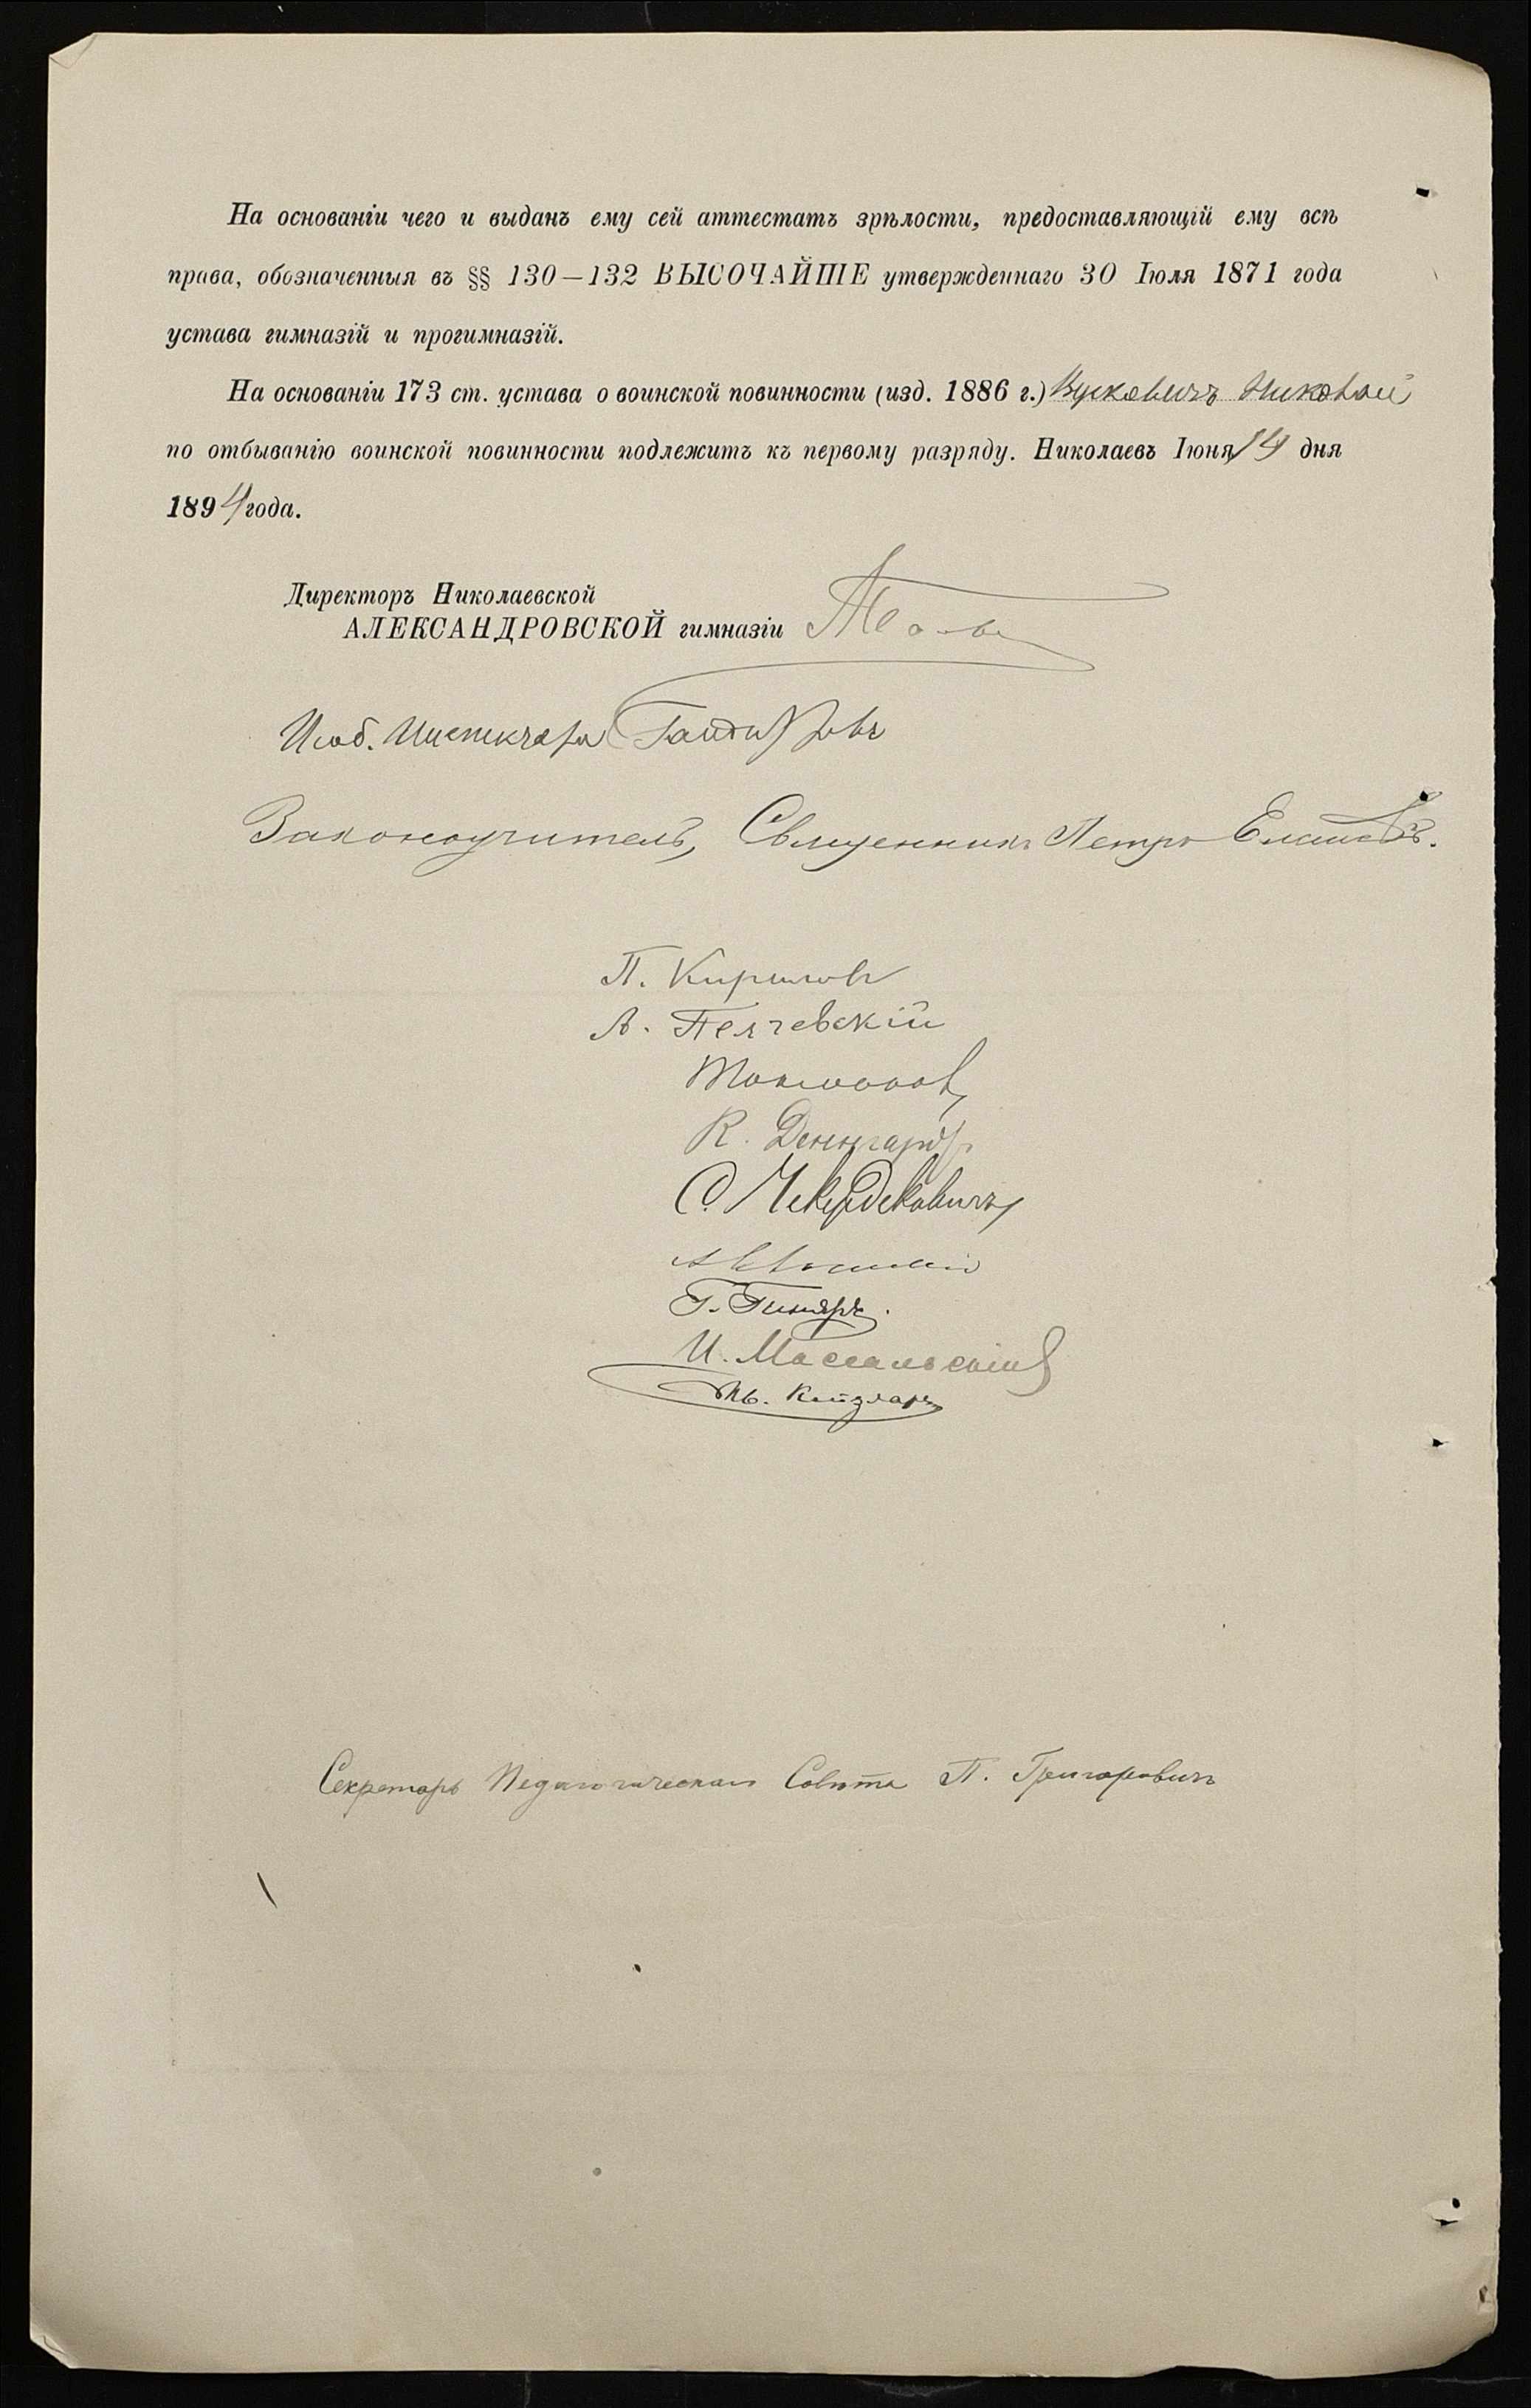 На основаніи чего и выданъ ему сей аттестатъ зрѣлости, предоставляющій ему всѣ
права, обозначенныя въ §§ 130—132 ВЫСОЧАЙШЕ утвержденнаго 30 Іюля 1871 года
устава гимназій и прогимназій.
На основаніи 173 ст. устава о воинской повинности (изд. 1886 г.) Вуковичъ Николай
по отбыванію воинской повинности подлежитъ къ первому разряду. Николаевъ Іюня 14 дня
1894 года.
Директоръ Николаевской
АЛЕКСАНДРОВСКОЙ гимназіи
Законоучитель, Священникъ Петръ
П. Кириловъ
А.
К.
С. Чекердековичъ
Г.
И. Массальскій
Секретарь Педагогическаго Совѣта П. Григоровичъ